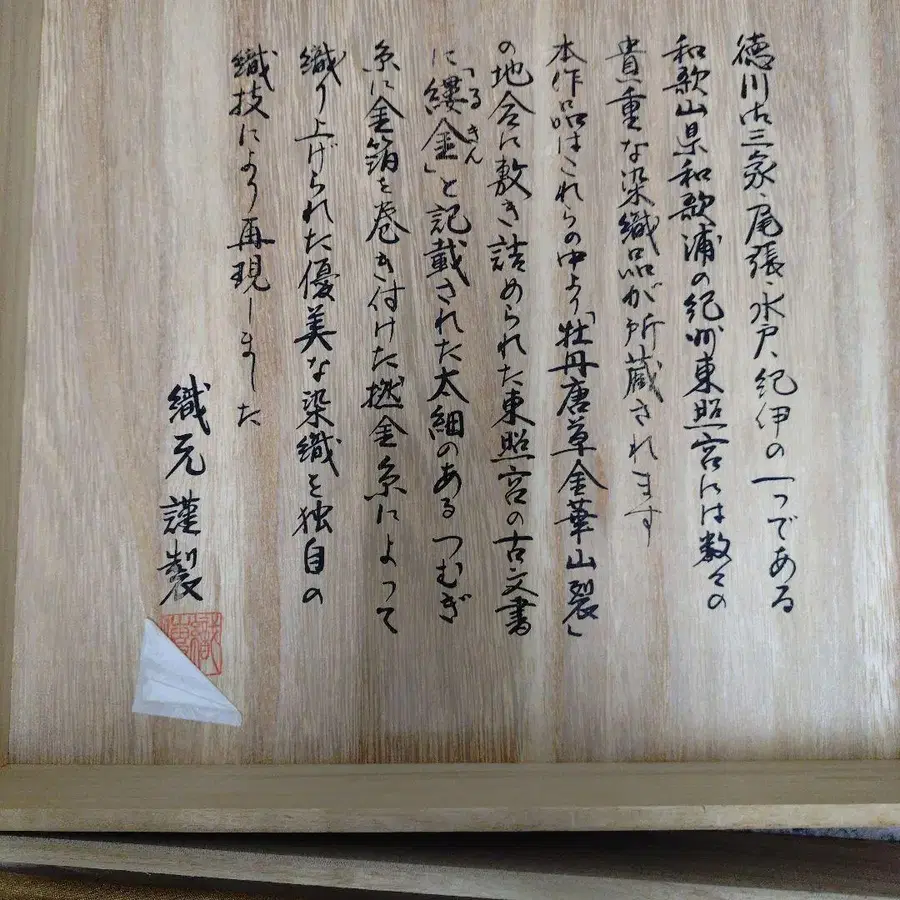 徳川御三家、尾張、水戸、紀伊の一つである
和歌山県和歌浦の紀州東照宮には数々の
貴重な染織品が所蔵されます
本作品はこれらの中より「牡丹唐草金華山裂」
の地合に敷き詰められた東照宮の古文書
に「縷金」と記載された太細のあるつむぎ
るきん
糸に金箔を巻き付けた撚金糸によって
織り上げられた優美な染織を独自の
織技により再現しました
織元謹製